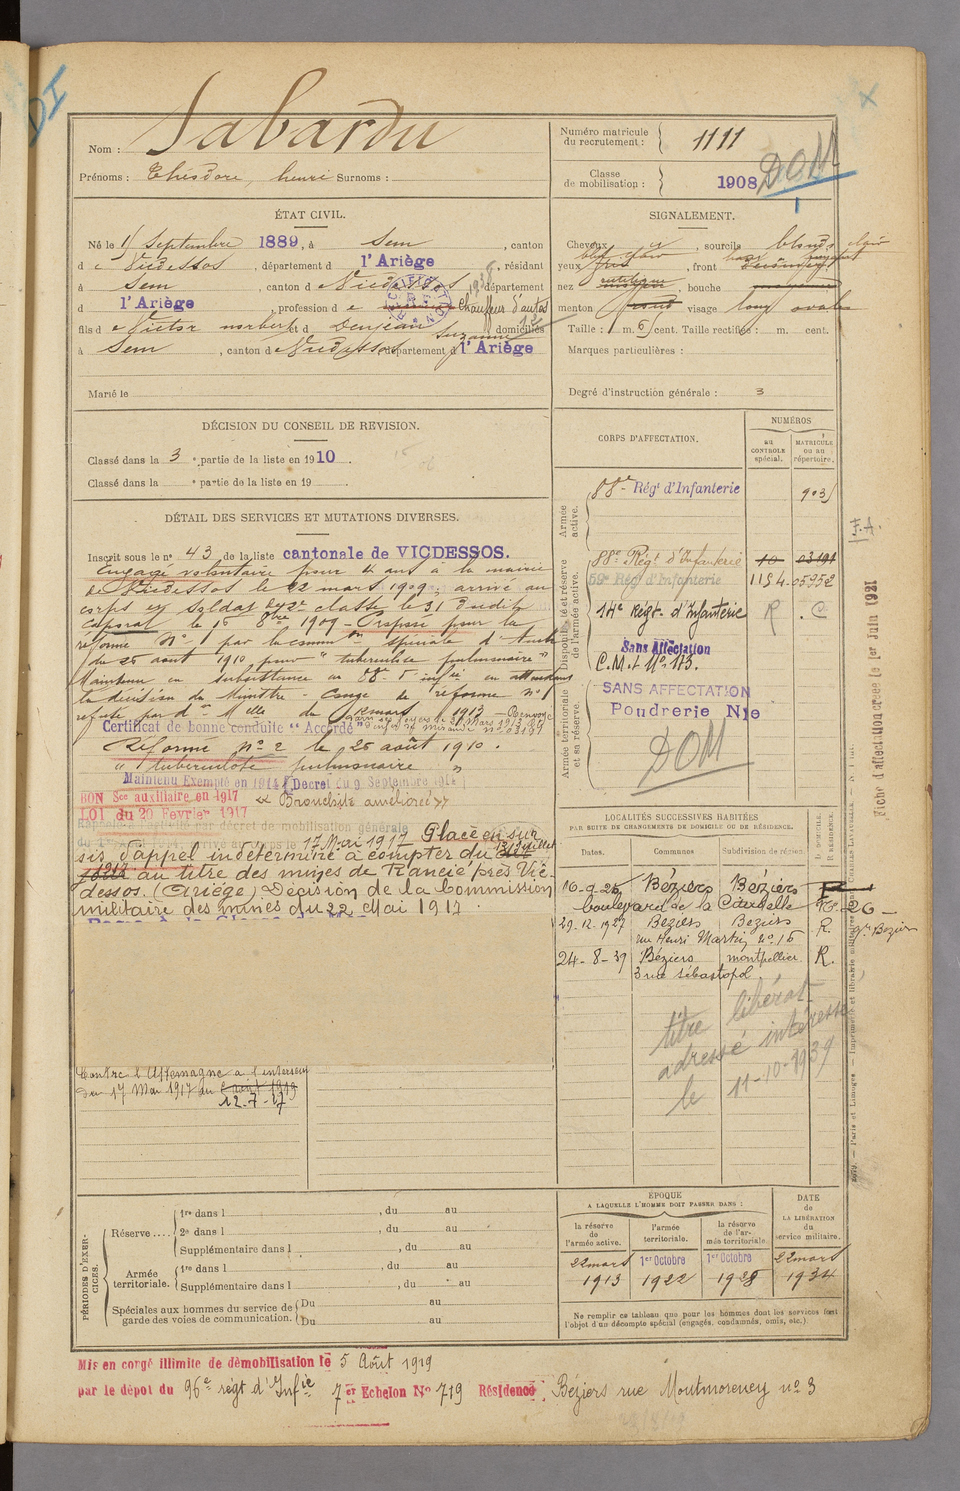 DI
Nom : Sabardu
Prénoms : Théodore, henri Surnoms :
Numéro matricule du recrutement : 1111
Classe de mobilisation : 1908
DOM
ÉTAT CIVIL.
Né le 1 Septembre 1889, à Sem, canton
de Vicdessos, département d l'Ariège, résidant
à Sem, canton d Vicdessos, département
d l'Ariège, profession d Chauffeur d'autos
fils de Victor norbert et d Denjean Suzanne domiciliés
à Sem, canton de Vicdessos, département d l'Ariège
Marié le
SIGNALEMENT.
Cheveux, sourcils blonds clair
yeux, front
nez rectiligne, bouche
menton, visage long ovale
Taille : 1 m. cent. Taille rectifiée : m. cent.
Marques particulières :
Degré d'instruction générale : 3
DÉCISION DU CONSEIL DE REVISION.
Classé dans la 3e partie de la liste en 1910.
Classé dans la e partie de la liste en 19
DÉTAIL DES SERVICES ET MUTATIONS DIVERSES.
Inscrit sous le n° 43 de la liste cantonale de VICDESSOS.
Engagé volontaire pour 4 ans à la mairie
de Vicdessos le 22 mars 1909, arrivé au
corps et soldat de 2e classe le 31 dudit
Caporal le 16 8bre 1909 - Proposé pour la
réforme N° 1 par la comm on spéciale d
du 26 août 1910 pour "tuberculose pulmonaire"
Maintenu en subsistance au 88e d'infie en attendant
la décision du Ministre - Congé de réforme n° 1
refusé par d on Melle du mars 1913 - Renvoyé
Certificat de bonne conduite "Accordé"
Réformé N° 2 le 26 août 1910.
"tuberculose pulmonaire"
Maintenu Exempté en 1914 (Décret du 9 Septembre 1914
BON Sce auxiliaire en 1917 « Bronchite améliorée »
LOI du 20 Février 1917
Rappelé à l'activité par décret de mobilisation générale
du 1er août 1914. Arrivé au corps le 17 Mai 1917. Placé en sur
sis d'appel indéterminé à compter du 13 juillet
au titre des mines de Rancié près Vic-
dessos. (Ariège) Décision de la Commission
militaire des mines du 22 Mai 1917.
Contre l'Allemagne à l'intérieur
du 17 Mai 1917 au 2 août 1919
12-7-17
CORPS D'AFFECTATION.
NUMÉROS
au CONTROLE spécial.
MATRICULE ou au répertoire.
Armée active.
88e Régt d'Infanterie 903
Disponibilité et réserve de l'armée active.
88e Régt d'Infanterie 10 03191
59e Régt d'Infanterie 1154 05952
14e Regt. d'Infanterie R . C
Sans Affectation
C.M.I. N° 173.
Armée territoriale et sa réserve.
SANS AFFECTATION
Poudrerie Nle
DOM
F.A.
Fiche d'affectation créée le 1er Juin 1921
LOCALITÉS SUCCESSIVES HABITÉES
PAR SUITE DE CHANGEMENTS DE DOMICILE OU DE RÉSIDENCE.
Dates. Communes Subdivision de région. D. DOMICILE. R. RÉSIDENCE.
16-9-26 Béziers Béziers
boulevard de la
29-12-1927 Béziers Béziers R.
rue Henri Martin n° 15
24-8-39 Béziers montpellier R.
3 rue sébastopol
titre libérat
adressé intéressé
le 11-10-1939
PÉRIODES D'EXERCICES.
Réserve .... 1re dans l, du au
2e dans l, du au
Supplémentaire dans l, du au
Armée territoriale. 1re dans l, du au
Supplémentaire dans l, du au
Spéciales aux hommes du service de garde des voies de communication. Du au
Du au
ÉPOQUE
A LAQUELLE L'HOMME DOIT PASSER DANS :
la réserve de l'armée active. l'armée territoriale. la réserve de l'armée territoriale.
DATE DE LA LIBÉRATION du service militaire.
22 mars 1913 1er Octobre 1922 1er Octobre 1928 22 mars 1934
Ne remplir ce tableau que pour les hommes dont les services font
l'objet d'un décompte spécial (engagés, condamnés, omis, etc.).
Mis en congé illimité de démobilisation le 5 Août 1919
par le dépôt du 96e régt d'Infie 7er Echelon No 719 Résidence Béziers rue Montmorency n° 3